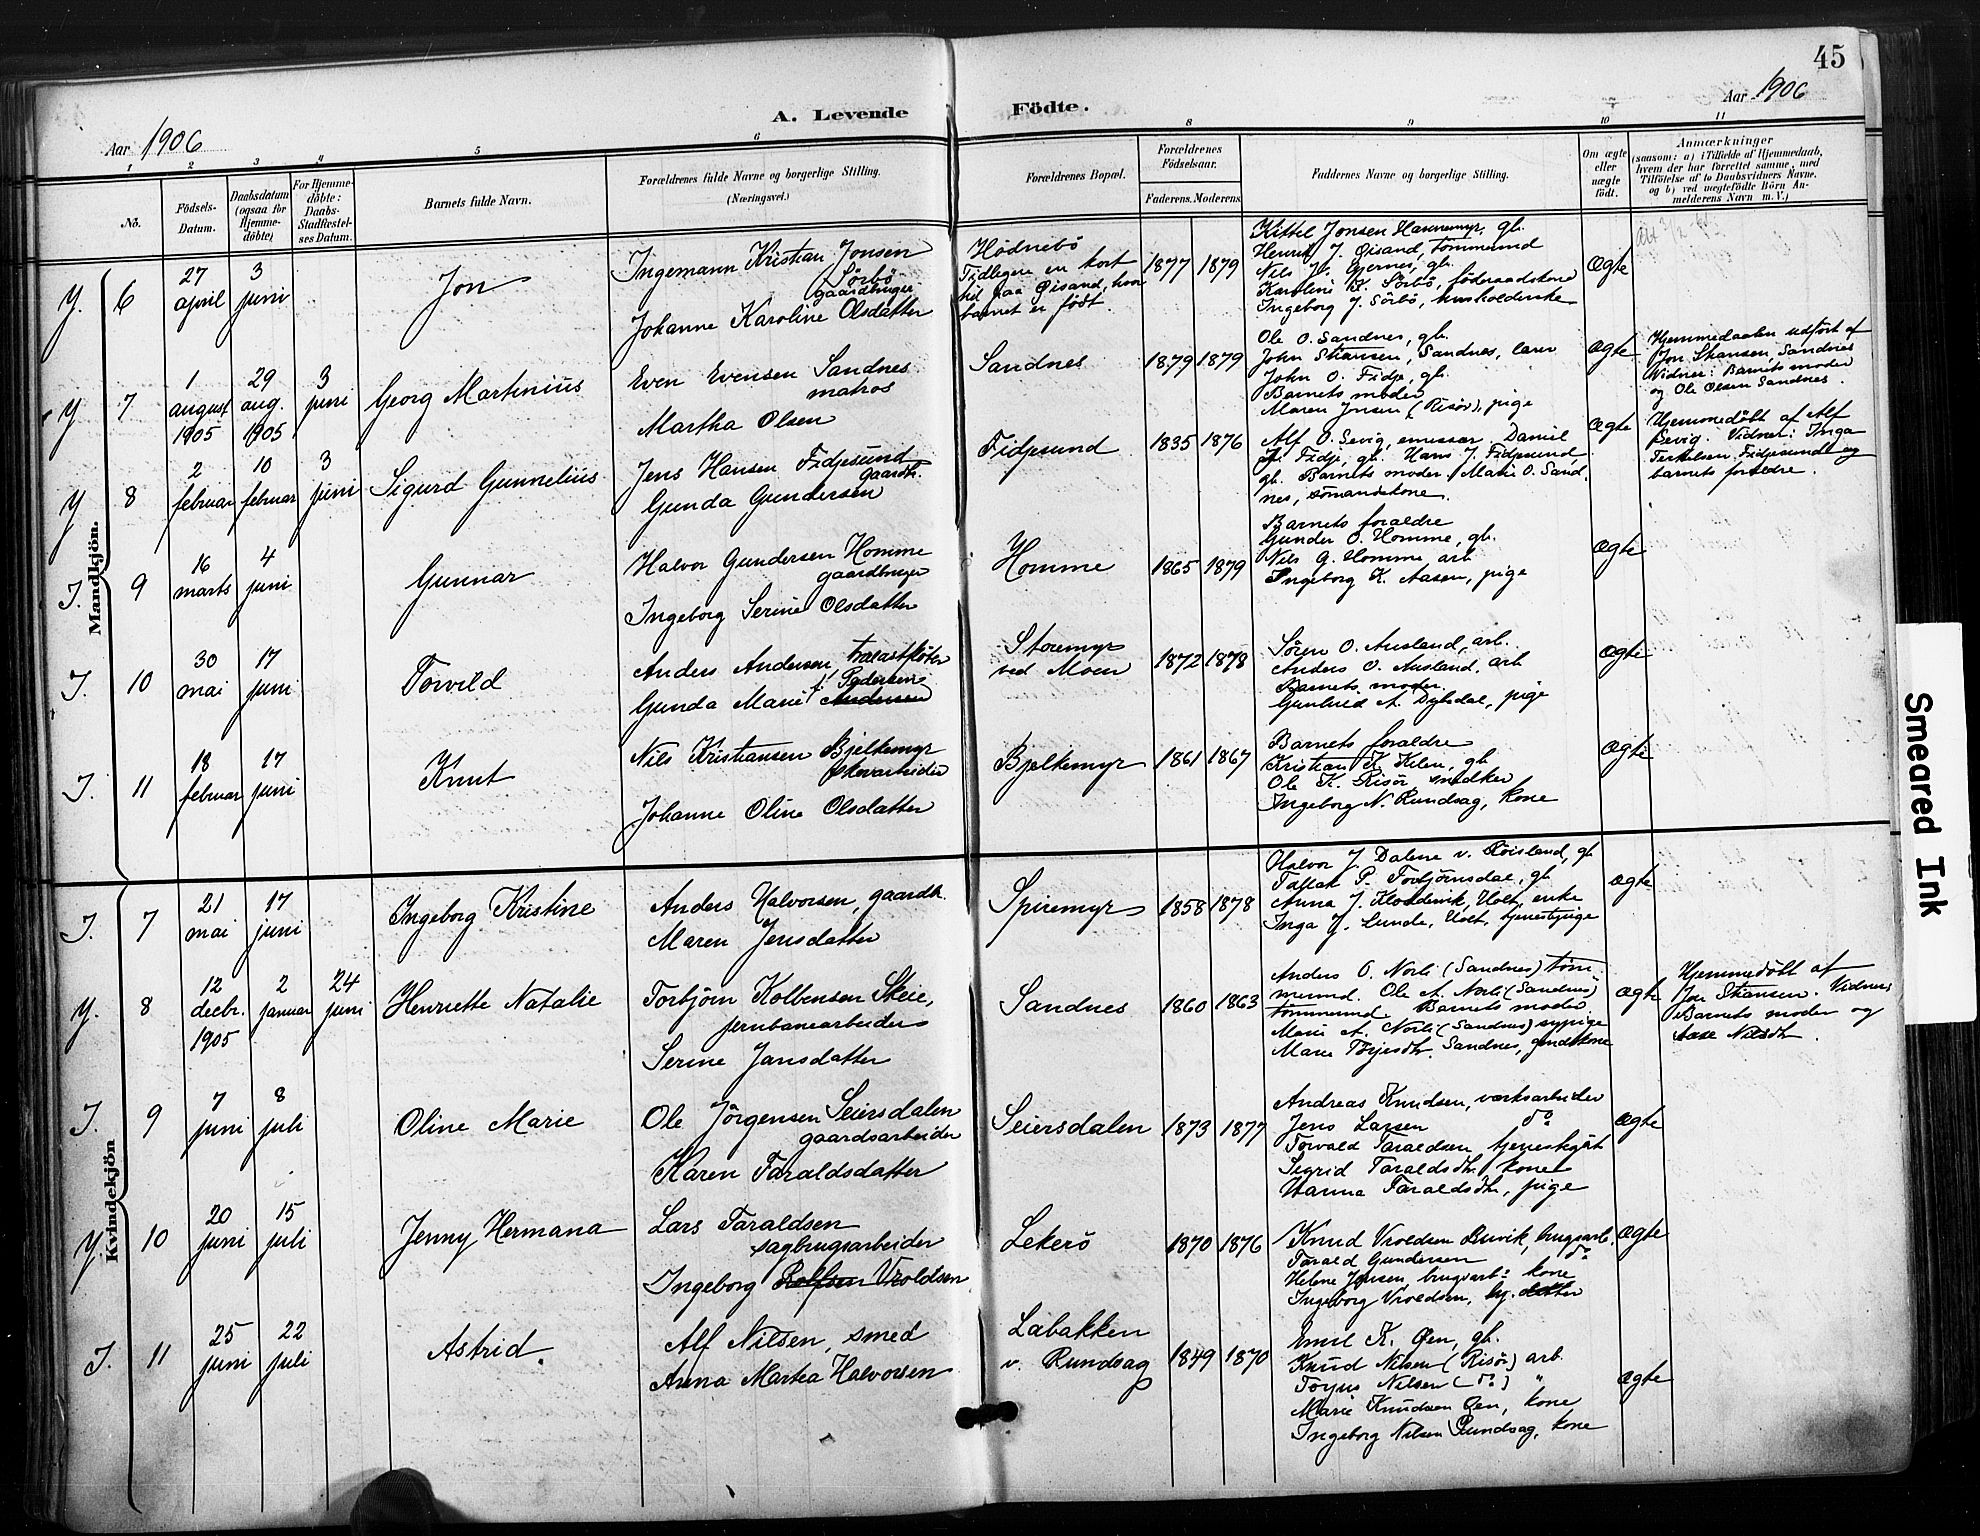 45
Aar 1906
A. Levende Födte.
Aar 1906
1 2 3 4 5 6 8 9 10 11
No.
Födsels-Datum.
Daabsdatum (ogsaa for Hjemme-döbte)
For Hjemme-döbte: Daabs-Stadfæstel-ses Datum.
Barnets fulde Navn.
Forældrenes fulde Navne og borgerlige Stilling. (Næringsvei.)
Forældrenes Bopæl.
Forældrenes Födselsaar.
Faderens. Moderens.
Faddernes Navne og borgerlige Stilling.
Om ægte eller uægte födt.
Anmærkninger
(saasom: a) i Tilfælde af Hjemmedaab, hvem der har forrettet samme, med Tilföielse af to Daabsvidners Navne, og b) ved uægtefödte Börn An-melderens Navn m. V.)
Mandkjön.
Y. 6
27 april
3 juni
Jon
Ingemann Kristian Jonsen
Sörbö
gaardbruger
Johanne Karoline Olsdatter
Hödnebö
Tidligere en kort
tid paa Öisand, hvor
barnet er födt.
1877 1879
Kittel Jonsen Hannemyr, gb.
Henrik J. Öisand, tömmermd
Nils J. Gjernes, gb.
Karoline K. Sörbö, föderaadskone
Ingeborg J. Sörbö, husholderske
Ægte
Y 7
1 august 1905
29 aug. 1905
3 juni
Georg Martinius
Even Evensen Sandnes
matros
Martha Olsen
Sandnes
1879 1879
Ole O. Sandnes, gb.
John Stiansen, Sandnes, lærer
John O. Fidje, gb.
Barnets moder
Maren Jensen (Risör), pige
Ægte
Hjemmedaaben udfört af
Jon Stiansen, Sandnes
Vidner: Barnets moder
og Ole Olsen Sandnes.
Y 8
2 februar
10 februar
3 juni
Sigurd Gunnelius
Jens Hansen Fidjesund
gaardb.
Gunda Gundersen
Fidjesund
1835 1876
Alf O. Sevig, emissær, Daniel
Fidje, gb. Hans J. Fidjesund
gb. Barnets moder, Marie O. Sand
nes, sömandskone.
Ægte
Hjemmedöbt af Alf
Sevig. Vidner: Inga
Terkelsen Fidjesund og
barnets forældre.
I. 9
16 marts
4 juni
Gunnar
Halvor Gundersen Homme
gaardbruger
Ingeborg Serine Olsdatter
Homme
1865 1879
Barnets forældre
Gunder O. Homme, gb.
Nils G. Homme arb
Ingeborg K. Aasen, pige
Ægte
I. 10
30 mai
17 juni
Torvild
Anders Andersen, trælastflöter
Pedersen
Gunda Marie Andersen
Storemyr
ved Moen
1872 1878
Sören O. Ausland, arb.
Anders O. Ausland, arb
Barnets moder.
Gunhild A. Dybdal, pige
Ægte
I. 11
18 februar
17 juni
Knut
Nils Kristiansen Bjelkemyr
skovarbeider
Johanne Oline Olsdatter
Bjelkemyr
1861 1867
Barnets forældre
Kristian K. Kilen, gb
Ole K. Risör snedker
Ingeborg N. Rundsag, kone
Ægte
Kvindekjön
I. 7
21 mai
17 juni
Ingeborg Kristine
Anders Halvorsen, gaardb.
Maren Jensdatter
Spiremyr
1858 1878
Halvor J. Dalene v. Röisland, gb
Tallak P. Torbjörnsdal, gb
Anna J. Holt, enke
Inga J. Lunde, Holt, tjenestpige
Ægte
Y. 8
12 decbr. 1905
2 januar
24 juni
Henriette Natalie
Torbjörn Kolbensen Skeie,
jernbanearbeider
Serine Jansdatter
Sandnes
1860 1863
Anders O. Norli (Sandnes) töm
mermd. Ole A. Norli (Sandnes)
tömmermd Barnets moder
Marie A. Norli (Sandnes) sypige
Maren Tarjesdtr. Sandnes, gmdskone
Ægte
Hjemmedöbt af
Jon Stiansen. Vidner
Barnets moder og
Aase Nilsdtr.
I. 9
7 juni
8 juli
Oline Marie
Ole Jörgensen Seiersdalen
gaardsarbeider
Karen Taraldsdatter
Seiersdalen
1873 1877
Andreas Knudsen, værksarbeider
Jens Larsen do
Torvald Taraldsen tjenestgut
Sigrid Taraldsdtr. kone
Hanna Taraldsdtr, pige
Ægte
Y. 10
20 juni
15 juli
Jenny Hermana
Lars Taraldsen
sagbrugsarbeider
Ingeborg Rolfsen Vroldsen
Lekerö
1870 1876
Knud Vroldsen Buvik, brugsarb.
Tarald Gundersen do
Helene Jensen, brugsarbs kone
Ingeborg Vroldsen, hj. datter
Ægte
I. 11
25 juni
22 juli
Astrid.
Alf Nilsen, smed
Anna Martea Halvorsen
Labakken
v. Rundsag
1849 1870
Emil K. Öen, gb.
Knud Nilsen (Risör) arb.
Torjus Nilsen (do) "
Marie Knudsen Öen, kone
Ingeborg Nilsen Rundsag, kone
Ægte
Smeared Ink